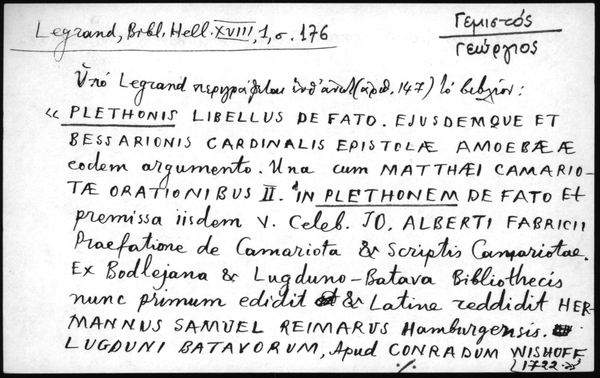 Γεμιστός
Γεώργιος
Legrand, Bibl. Hell. XVIII, 1, σ. 176
Ὑπό Legrand περιγράφεται (ἀριθ. 147) τό βιβλίον:
« PLETHONIS LIBELLUS DE FATO. EJUSDEMQUE ET
BESSARIONIS CARDINALIS EPISTOLÆ AMOEBÆÆ
eodem argumento. Una cum MATTHÆI CAMARIO-
TÆ ORATIONIBUS II. IN PLETHONEM DE FATO Et
premissa iisdem V. Celeb. JO. ALBERTI FABRICII
Praefatione de Camariota & Scriptis Camariotae.
Ex Bodlejana & Lugduno-Batava Bibliothecis
nunc primum edidit & Latine reddidit HER-
MANNUS SAMUEL REIMARUS Hamburgensis.
LUGDUNI BATAVORUM, Apud CONRADUM WISHOFF
1722 »
./.